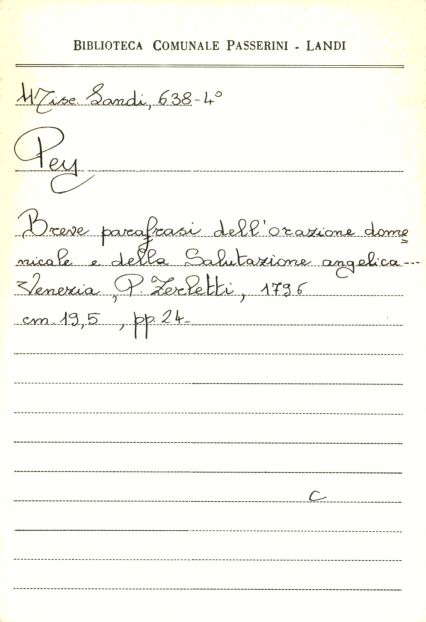 BIBLIOTECA COMUNALE PASSERINI - LANDI
Misc. Landi, 638-4°
Pey
Breve parafrasi dell'orazione dome=
nicale e della Salutazione angelica...
Venezia, P. Zerletti, 1796
cm. 19,5, pp. 24-
C